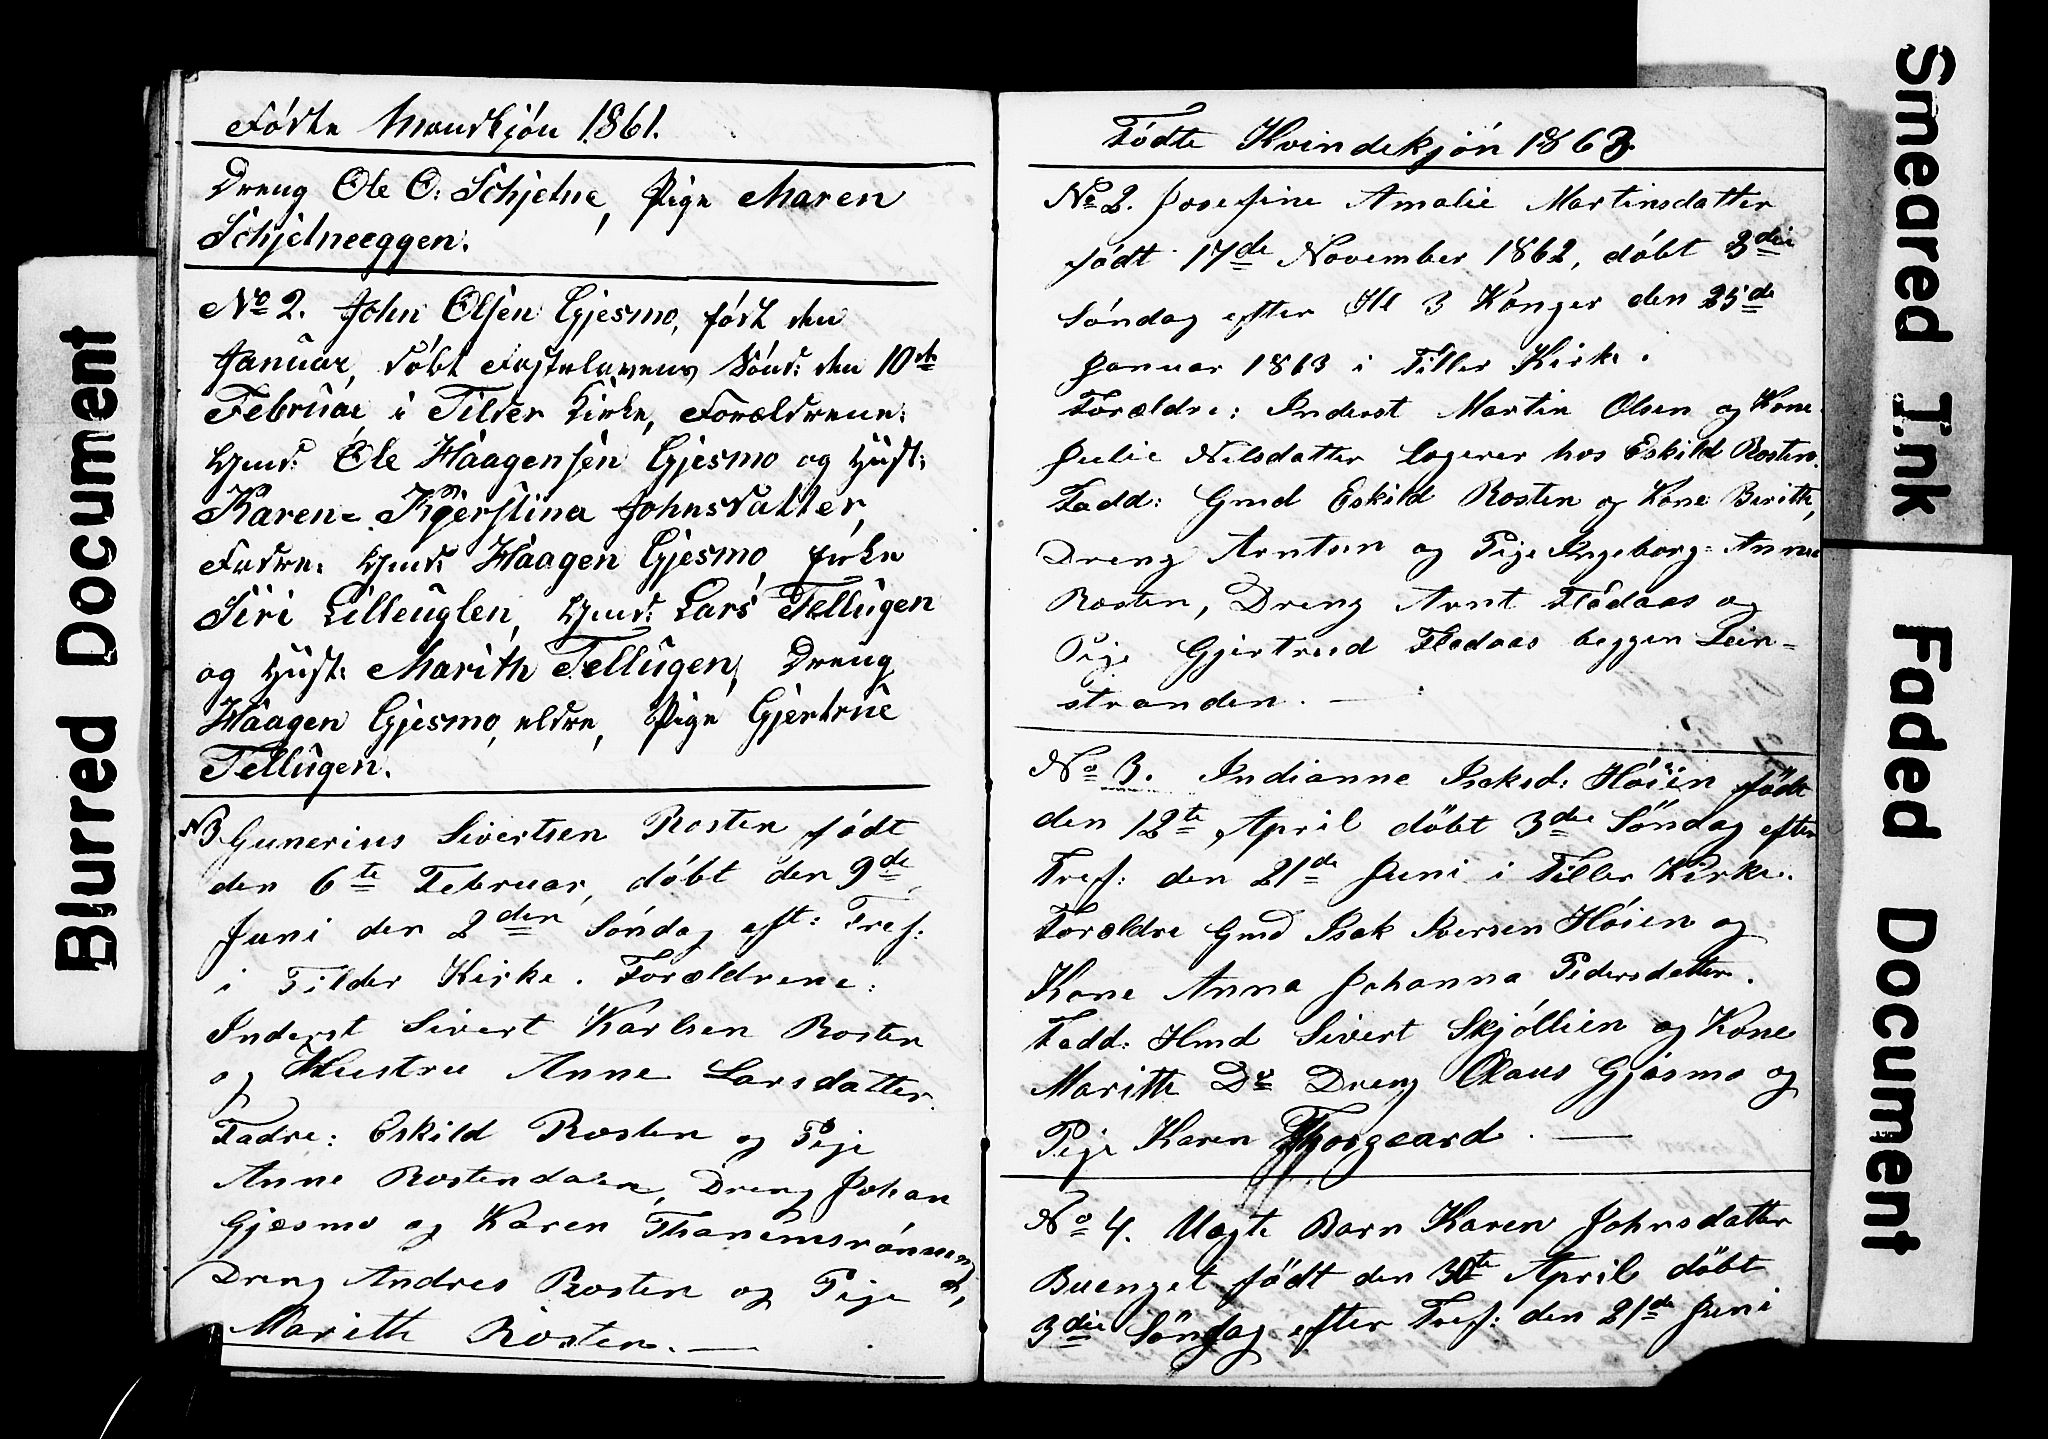 Födte Mandkjön 1861.
Dreng Ole O: Schjelne, Pige Maren
Schjelneeggen.
No 2. John Olsen Gjesmo, födt den
Januar, döbt Fastelavens Sönd: den 10de
Februar i Tilder Kirke, Forældrene:
Gmd: Ole Haagensen Gjesmo og Hust:
Karen- Kjerstina Johnsdatter,
Fadre: Gmd: Haagen Gjesmo, Enke
Siri Lilleuglen, Gmd: Lars Tellugen
og Hust: Marith Tellugen, Dreng
Haagen Gjesmo, eldre, Pige Gjertrue
Tellugen.
N3 Gunerius Sivertsen Rosten födt
den 6te Februar, döbt den 9de
Juni den 2den Söndag eft: Tref:
i Tilder Kirke. Forældrene:
Inderst Sivert Karlsen Rosten
og Hustru Anne Larsdatter.
Fadre: Eskild Rosten og Pige
Anne Rostendalen, Dreng Johan
Gjesmo og Karen Thanemsrönningen,
Dreng Andres Rosten og Pige
Marith Rosten. —
Födte Kvindekjön 1863
No 2. Josefine Amalie Martinsdatter
födt 17de November 1862, döbt 3die
Söndag efter Hl 3 Konger den 25de
Januar 1863 i Tiller Kirke.
Forældre: Inderst Martin Olsen og Kone
Julie Nilsdatter logerer hos Eskild Rosten.
Fadd: Gmd Eskild Rosten og Kone Beritte,
Dreng Arntsen og Pige Ingeborg-Anna
Rosten, Dreng Arnt Flådaas og
Pige Gjertrud Fladaas beggen Lein-
stranden. —
No 3. Indianne Isaksd: Höien födt
den 12te April döbt 3die Söndag efter
Tref: den 21de Juni i Tiller Kirke.
Forældre Gmd Isak Iversen Höien og
Kone Anna Johanna Pedersdatter.
Fadd: Hmd Sivert Skjöllien og Kone
Maritte Do Dreng Olaus Gjesmo og
Pige Karen Thorgaard. —
No 4. Uægte Barn Karen Johnsdatter
Buenget födt den 30te April döbt
3die Söndag efter Tref: den 21de Juni
Blurred Document
Smeared Ink
Faded Document